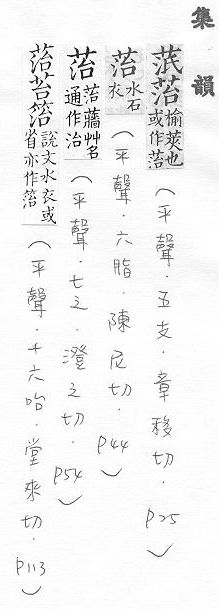 集韻
茋菭 愉莢也或作菭（平聲．五支．章移切．P25）
菭 水石衣（平聲．六脂．陳尼切．P44）
菭 菭蘠艸名通作治（平聲．七之．澄之切．P54）
菭苔箈 說文水衣或省亦作箈（平聲．十六咍．堂來切．P113）